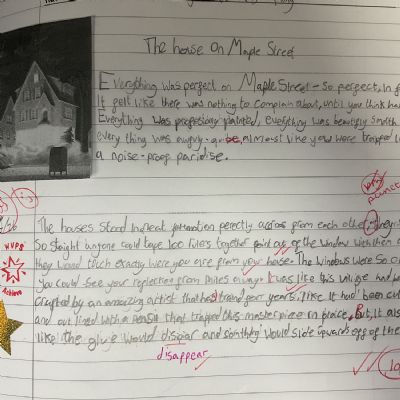 The house on Maple Street
Everything was perfect on Maple Street - so perfect, in f
It felt like there was nothing to complain about, until you think har
Everything was painted, everything was beautify smith
every thing was almost like you were trapped i
a noise-proof paridise.
The houses stood in neat formation perectly across from each other
So straight anyone could tape 100 rulers together point out of the window
they would touch exactly were you are from your house. The windows were so c
you could see your reflection from miles away. It was like this village had be
crafted by an amazing artist that had traind for years, like it had been cu
and out lined with a that trapped this masterpiece in place. But, it als
like the glue would disipiar and somthing would slide upwards off of the
disappear
WUPS
Achieve